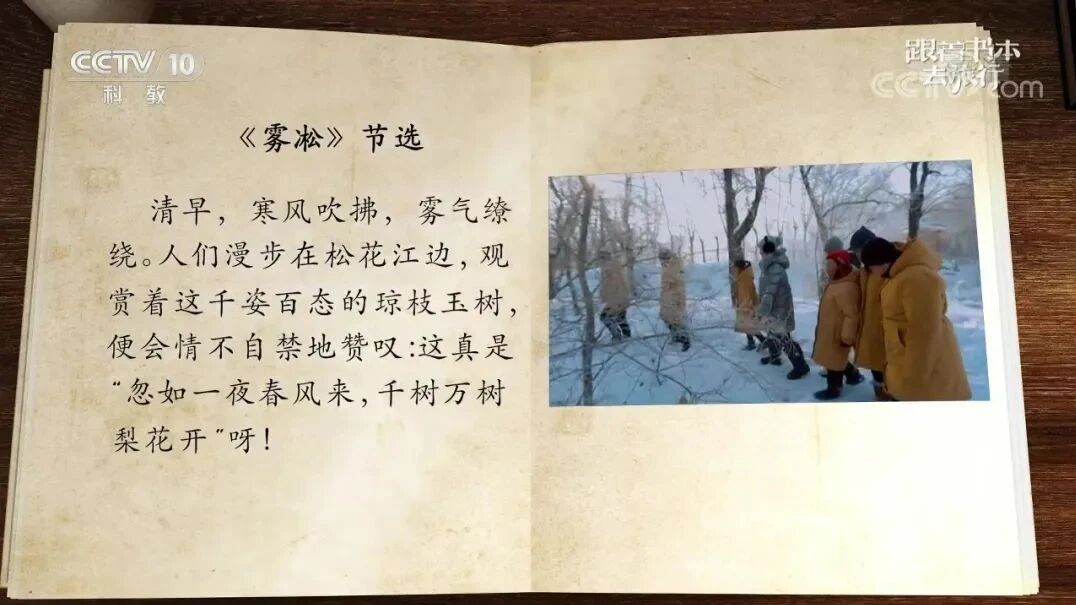 CCTV 10
科教
跟着书本
去旅行
CCTV.com
《雾凇》节选
清早，寒风吹拂，雾气缭
绕。人们漫步在松花江边，观
赏着这千姿百态的琼枝玉树，
便会情不自禁地赞叹：这真是
“忽如一夜春风来，千树万树
梨花开”呀！